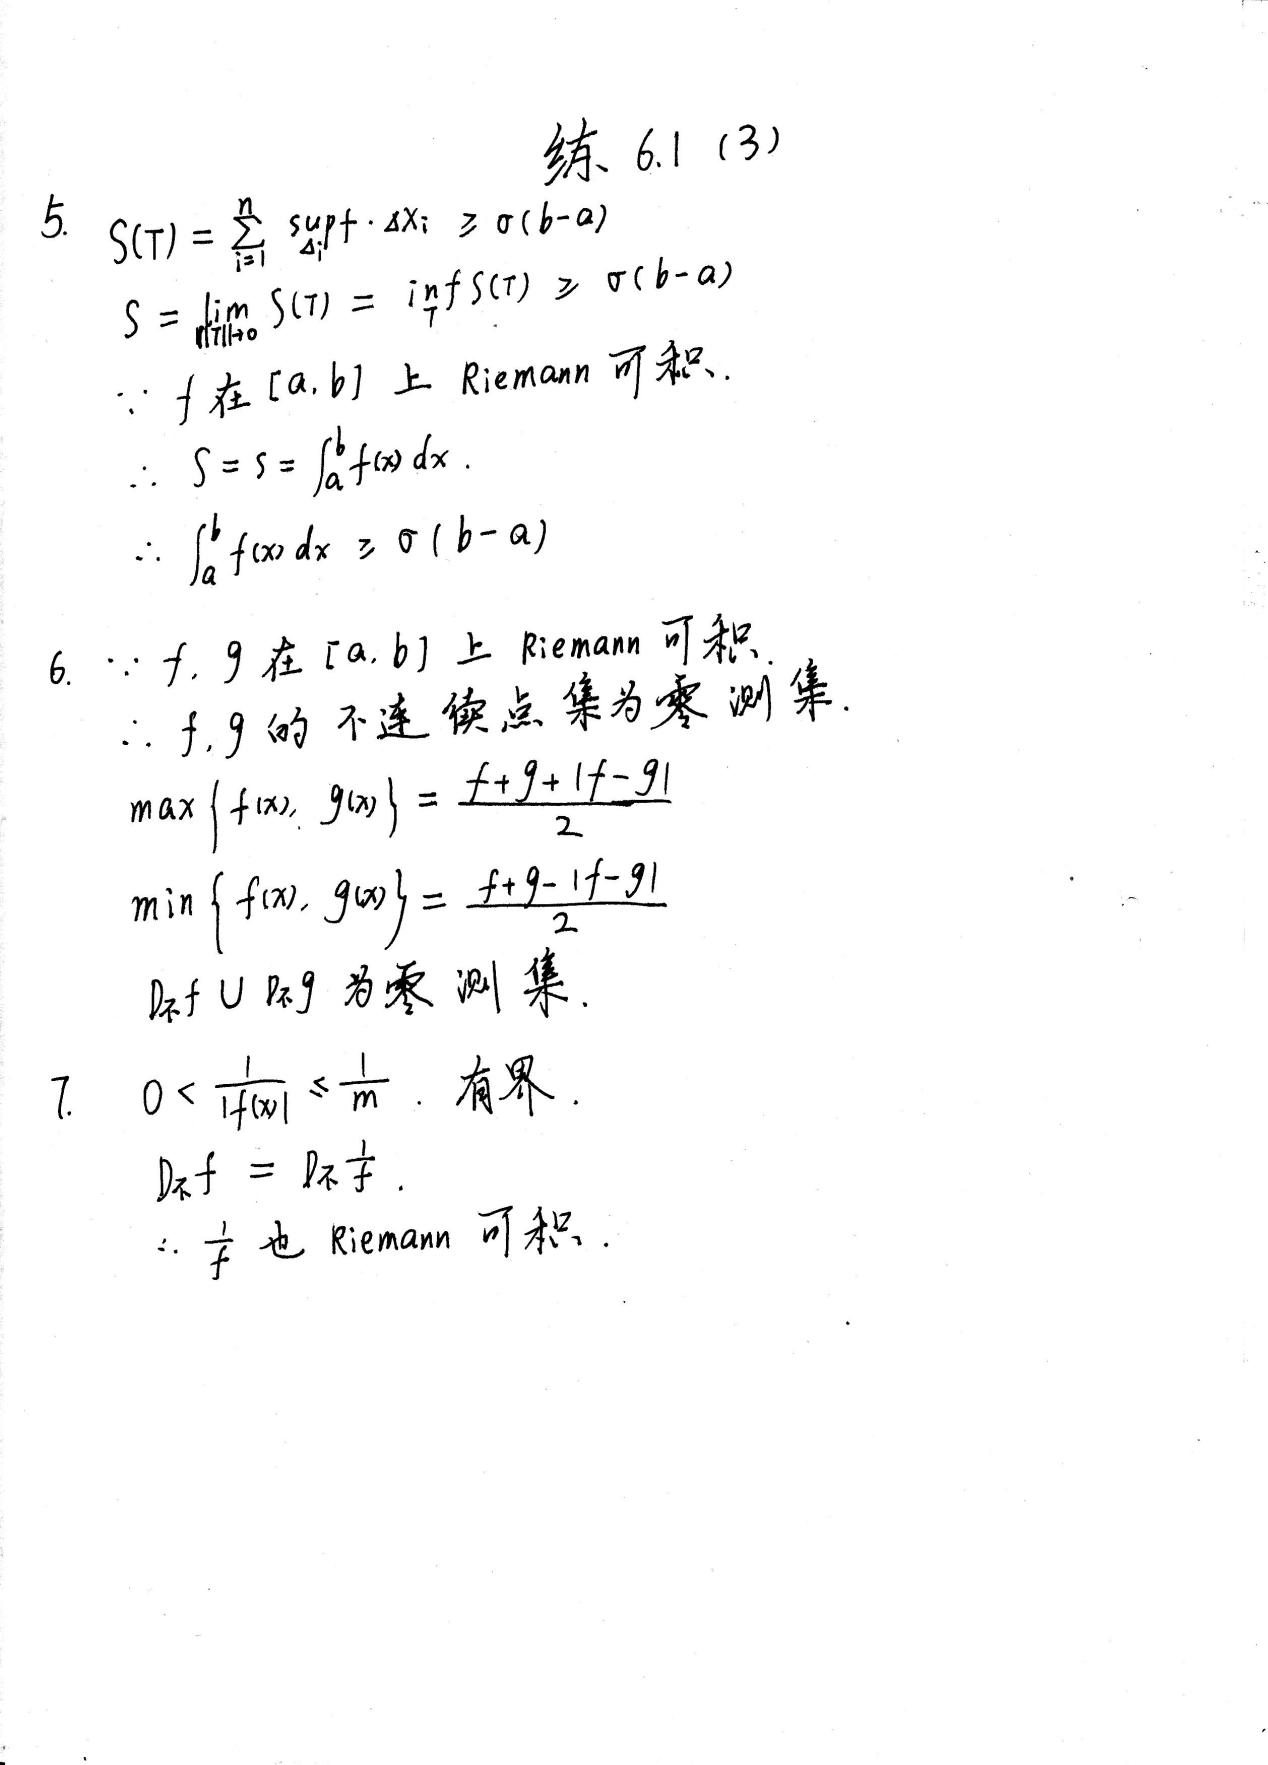 练 6.1 (3)
5. S(T) = ∑_{i=1}^{n} sup_{Δi} f · ΔXi ≥ σ(b-a)
S = lim_{||T||→0} S(T) = inf_T S(T) ≥ σ(b-a)
∵ f 在 [a,b] 上 Riemann 可积.
∴ S = s = ∫_a^b f(x) dx.
∴ ∫_a^b f(x) dx ≥ σ(b-a)
6. ∵ f, g 在 [a,b] 上 Riemann 可积.
∴ f, g 的 不连续点集为零测集.
max{f(x), g(x)} = \frac{f+g+|f-g|}{2}
min{f(x), g(x)} = \frac{f+g-|f-g|}{2}
D不f ∪ D不g 为零测集.
7. 0 < \frac{1}{|f(x)|} ≤ \frac{1}{m}. 有界.
D不f = D不\frac{1}{f}.
∴ \frac{1}{f} 也 Riemann 可积.